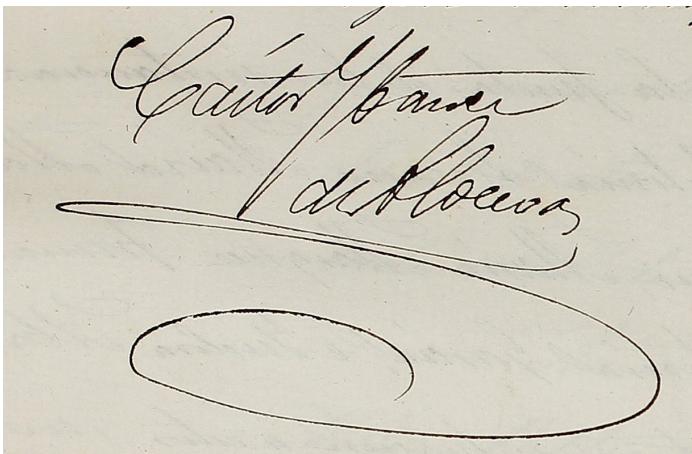 Cástor Ybañez
de Aldecoa